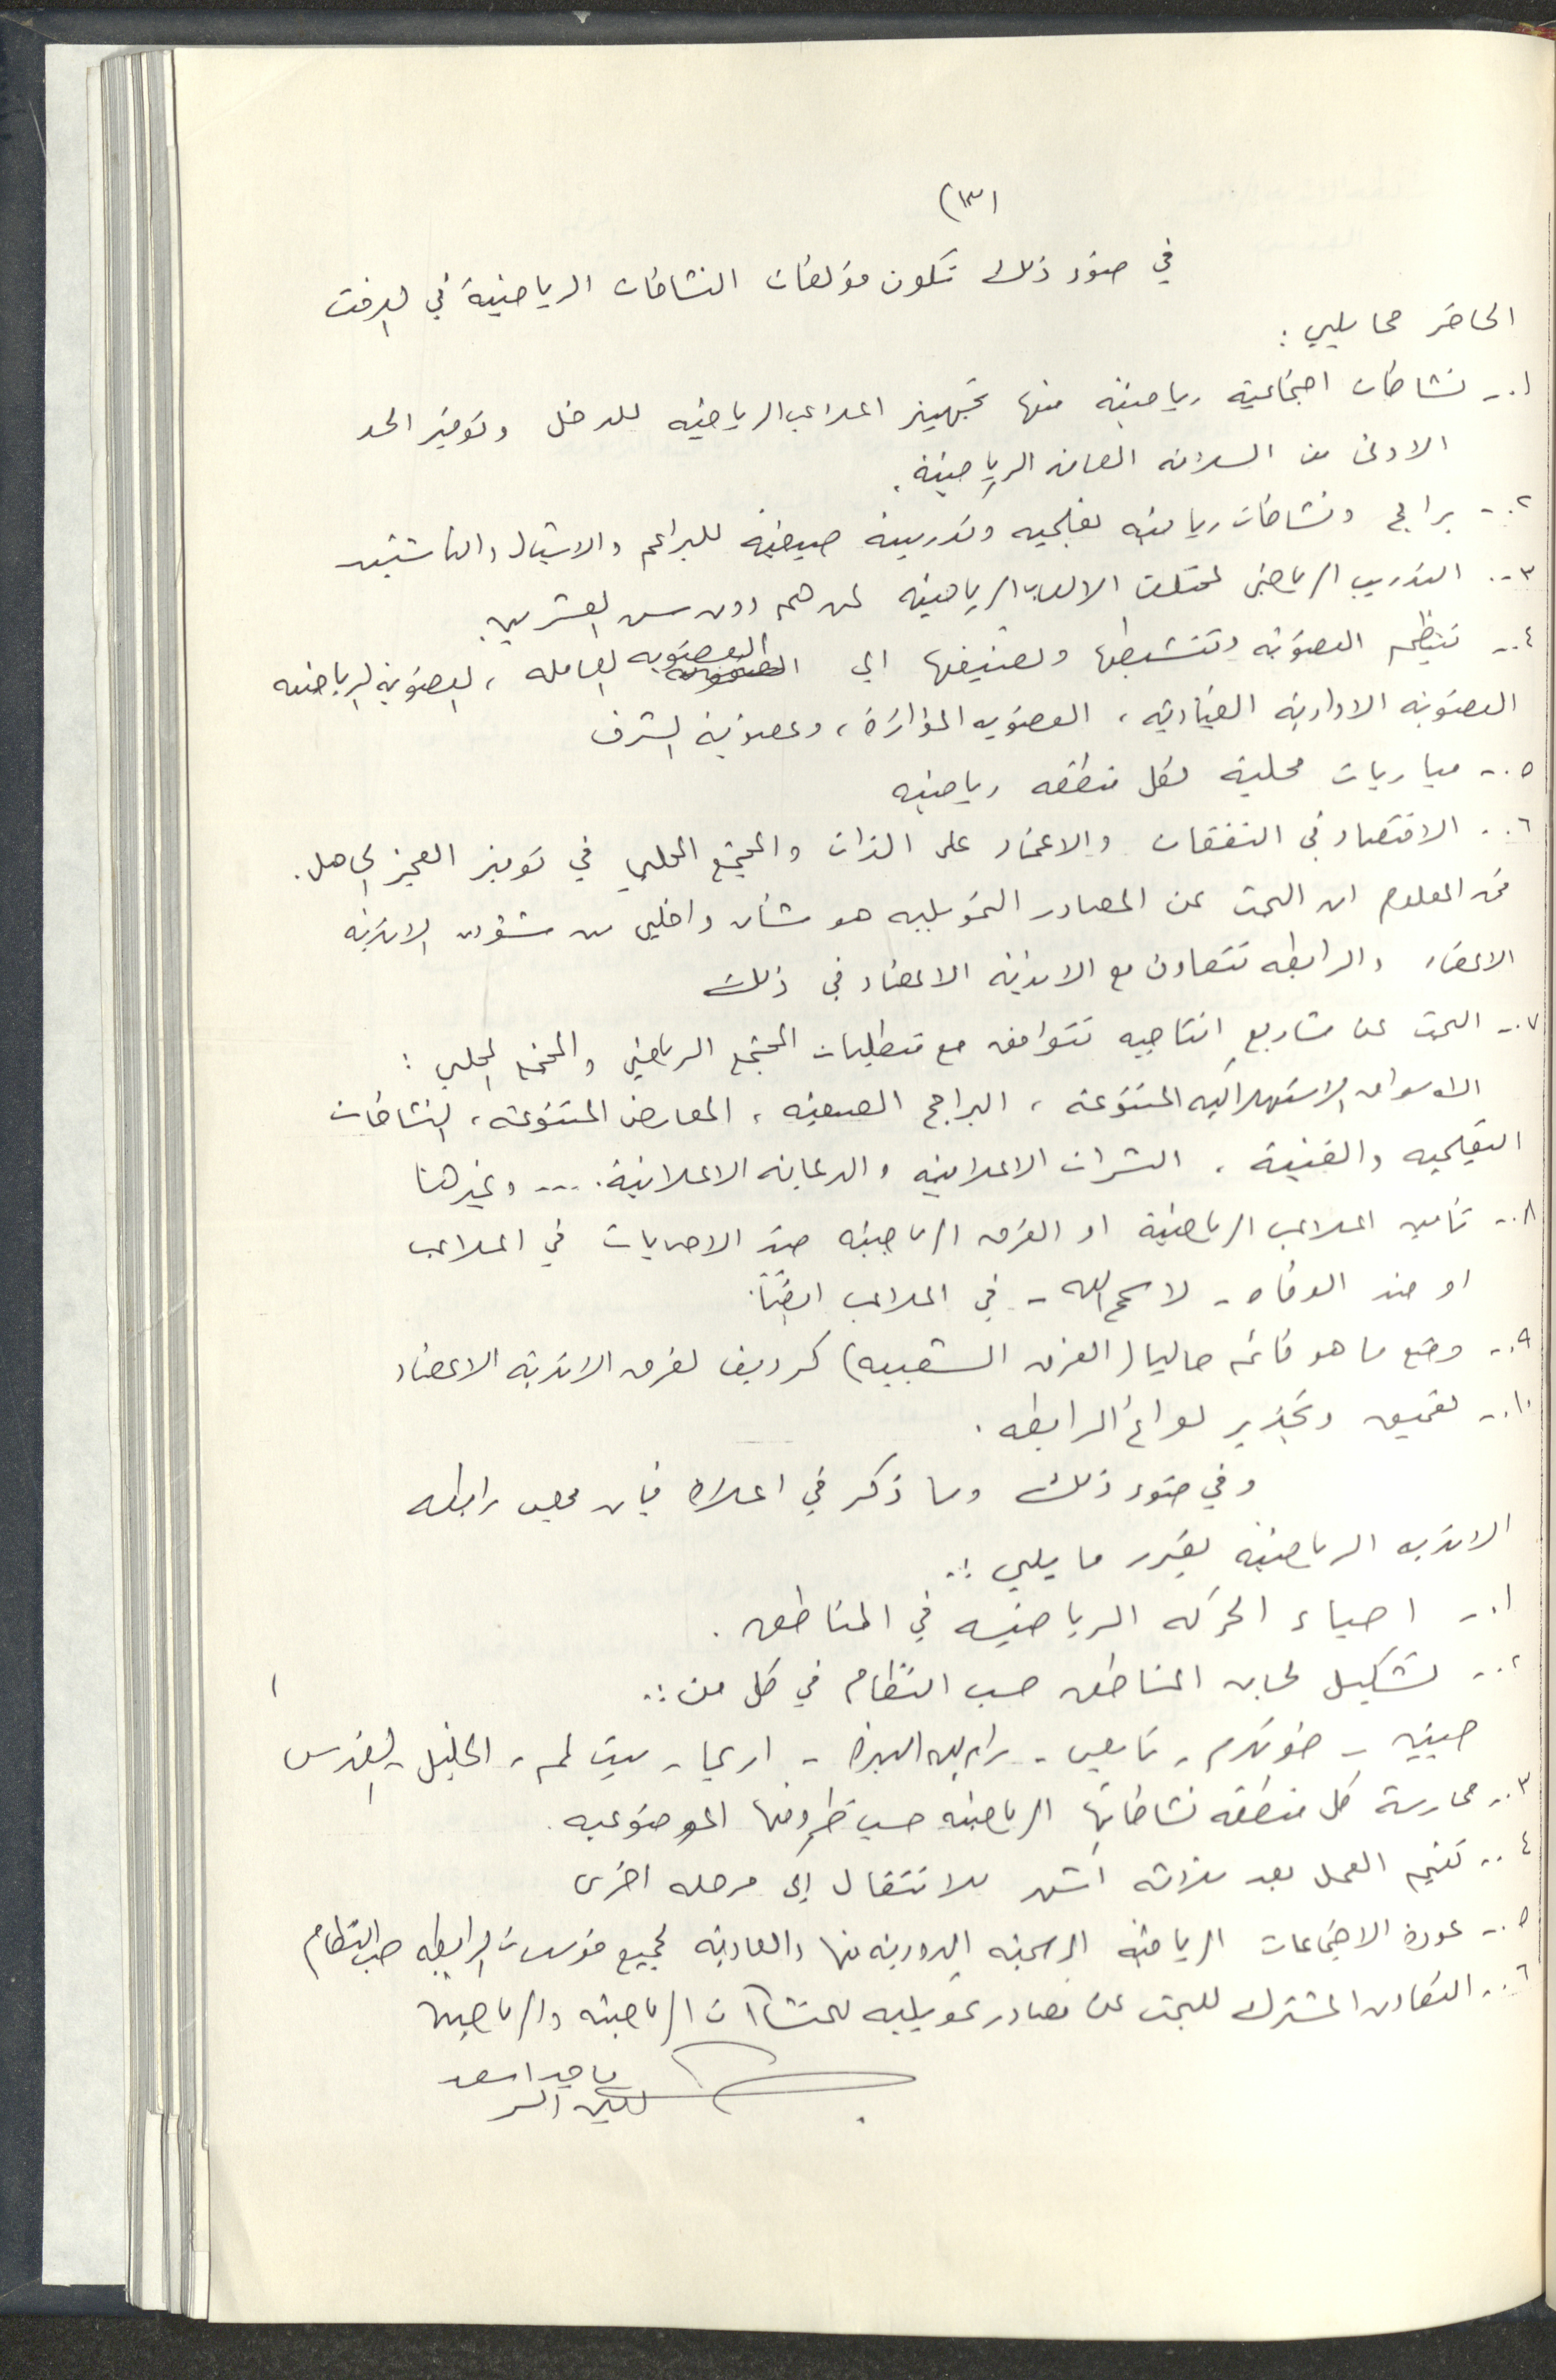 (١٣)
في ضوء ذلك تكون مؤلفات النشاطات الرياضية في الوقت
الحاضر مما يلي :
١.- نشاطات اجتماعية رياضية منها تجهيز الملاعب الرياضيه للدخل وتوفير الحد
الادنى من السلامه العامه الرياضية.
٢.- برامج ونشاطات رياضيه تعليميه وتدريبية صيفية للبراعم والاشبال والناشئين
٣.- التدريب الرياضي لمختلف الالعاب الرياضيه لمن هم دون سن العشرين.
٤.- تنظيم العضوية وتنشيطها وتصنيفها الى العضويه العامله ، العضوية الرياضيه
العضوية الادارية القيادية ، العضويه المؤازرة ، وعضوية الشرف
٥.- مباريات محلية لكل منطقه رياضيه
٦.- الاقتصاد في النفقات والاعتماد على الذات والمجتمع المحلي في توفير العجز الحاصل.
فمن المعلوم ان البحث عن المصادر التمويليه هو شأن داخلي من شؤون الانديه
الاعضاء والرابطه تتعاون مع الانديه الاعضاء في ذلك
٧.- البحث عن مشاريع انتاجيه تتوافق مع متطلبات المجتمع الرياضي والمجتمع المحلي :
الاسواق الاستهلاكيه المتنوعه ، البرامج الصيفيه ، المعارض المتنوعة ، النشاطات
التعليميه والفنية ، النشرات الاعلامية والدعايه الاعلانية .... وغيرهنا
٨.- تأمين الملاعب الرياضية او الفرق الرياضيه ضد الاصابات في الملاعب
او ضد الوفاه - لا سمح الله - في الملاعب ايضاً.
٩.- وضع ما هو قائم حاليا (الفرق الشعبيه) كرديف لفرق الاندية الاعضاء
١٠.- تعميق وتجذير لوائح الرابطه .
وفي ضوء ذلك وما ذكر في اعلاه فان مجلس رابطه
الانديه الرياضيه يقرر ما يلي :.
١.- احياء الحركه الرياضيه في المناطق .
٢.- تشكيل لجان المناطق حسب النظام في كل من :.
جنين - طولكرم - نابلس - رام الله البيره - اريحا - بيت لحم - الخليل - القدس
٣.- ممارسة كل منطقه نشاطاتها الرياضيه حسب ظروفها الموضوعيه .
٤.- تقييم العمل بعد ثلاثه اشهر للانتقال الى مرحله اخرى
٥.- عودة الاجتماعات الرياضيه الرسميه الدورية منها والعادية لجميع مؤسسات الرابطه حسب النظام
٦.- التعاون المشترك للبحث عن مصادر تمويليه للمنشآت الرياضيه والرياضيين
ماجد اسعد
امين السر